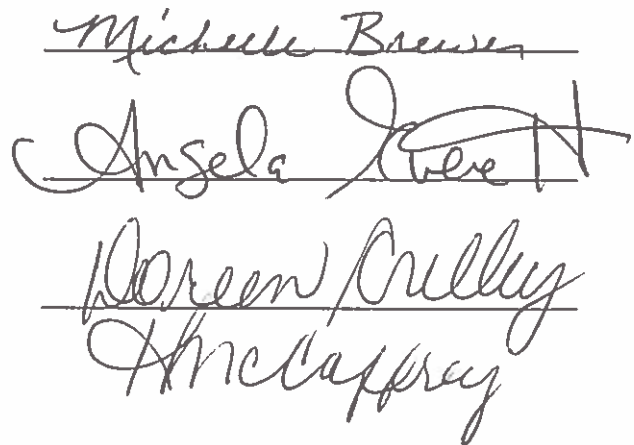 Michelle Brewer
Angela Everett
Doreen Crilley
H McCaffrey